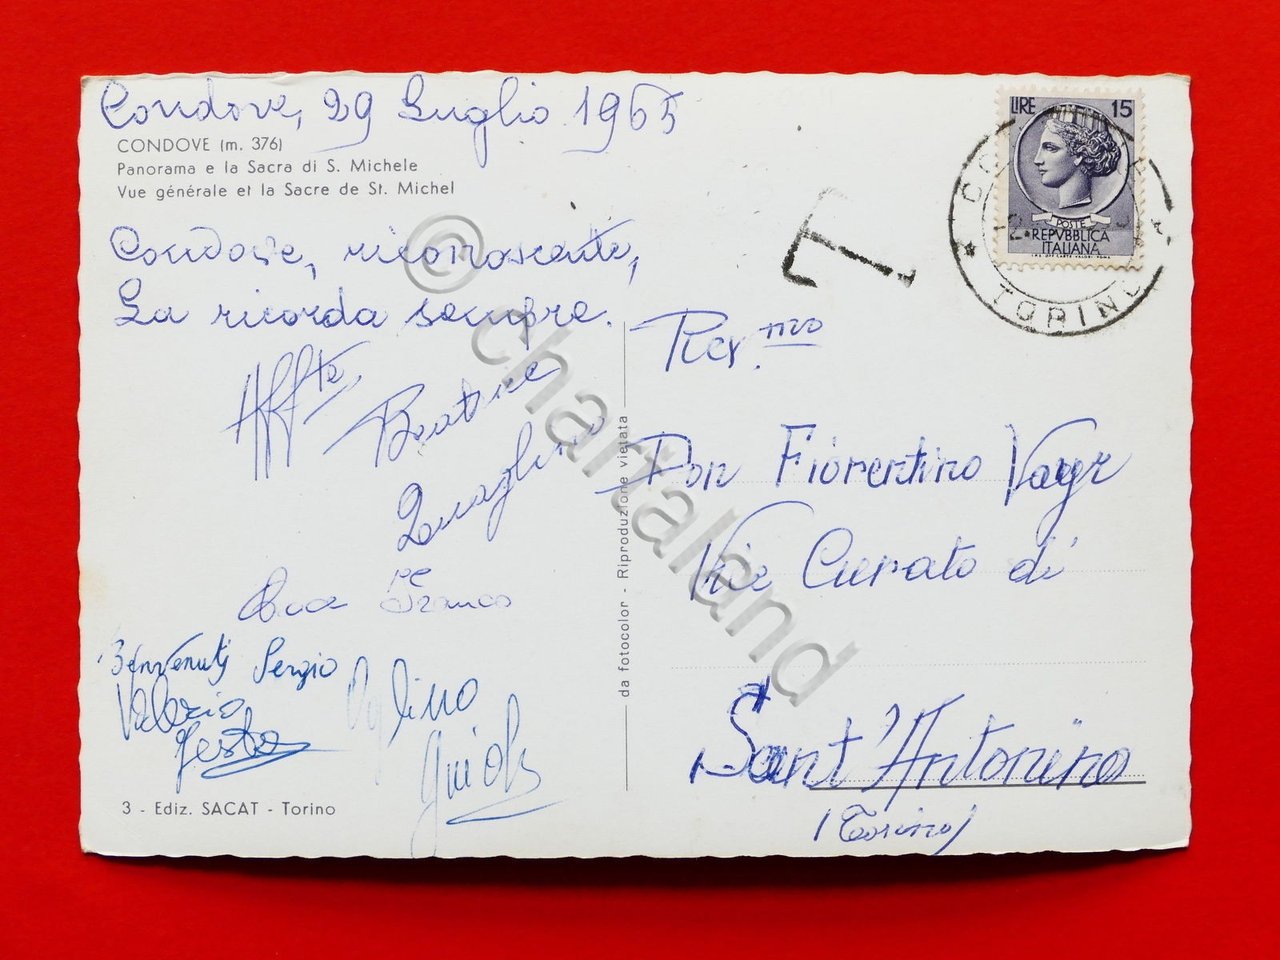 Condove, 29 Luglio 1965
CONDOVE (m. 376)
Panorama e la Sacra di S. Michele
Vue générale et la Sacre de St. Michel
Condove, riconoscente,
La ricorda sempre.
Aff.te
Beatrice
Franco
Benvenuti Sergio
Valerio
Testa
3 - Ediz. SACAT - Torino
da fotocolor - Riproduzione vietata
LIRE 15
POSTE
REPVBBLICA
ITALIANA
TORINO
T
Rev.mo
Don Fiorentino Vayr
Vic Curato di
Sant'Antonino
(Torino)
© chartaland